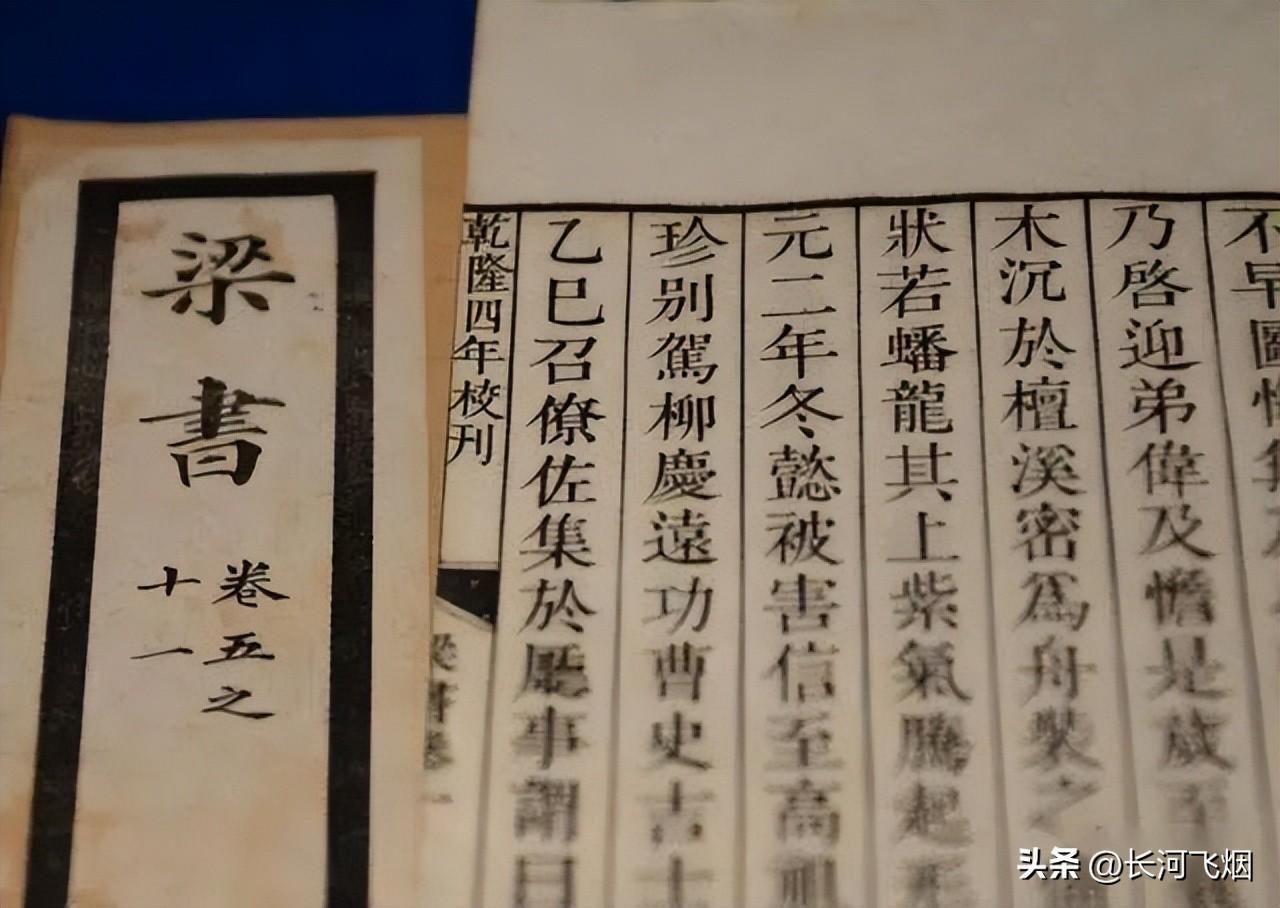 梁書
卷五之
十一
不早圖
乃啓迎弟偉及憺是歲至
木沉於檀溪密爲舟裝之
狀若蟠龍其上紫氣騰起形
元二年冬懿被害信至高祖
珍別駕柳慶遠功曹史吉士
乙巳召僚佐集於廳事謂曰
乾隆四年校刊
梁書卷一
头条 @长河飞烟